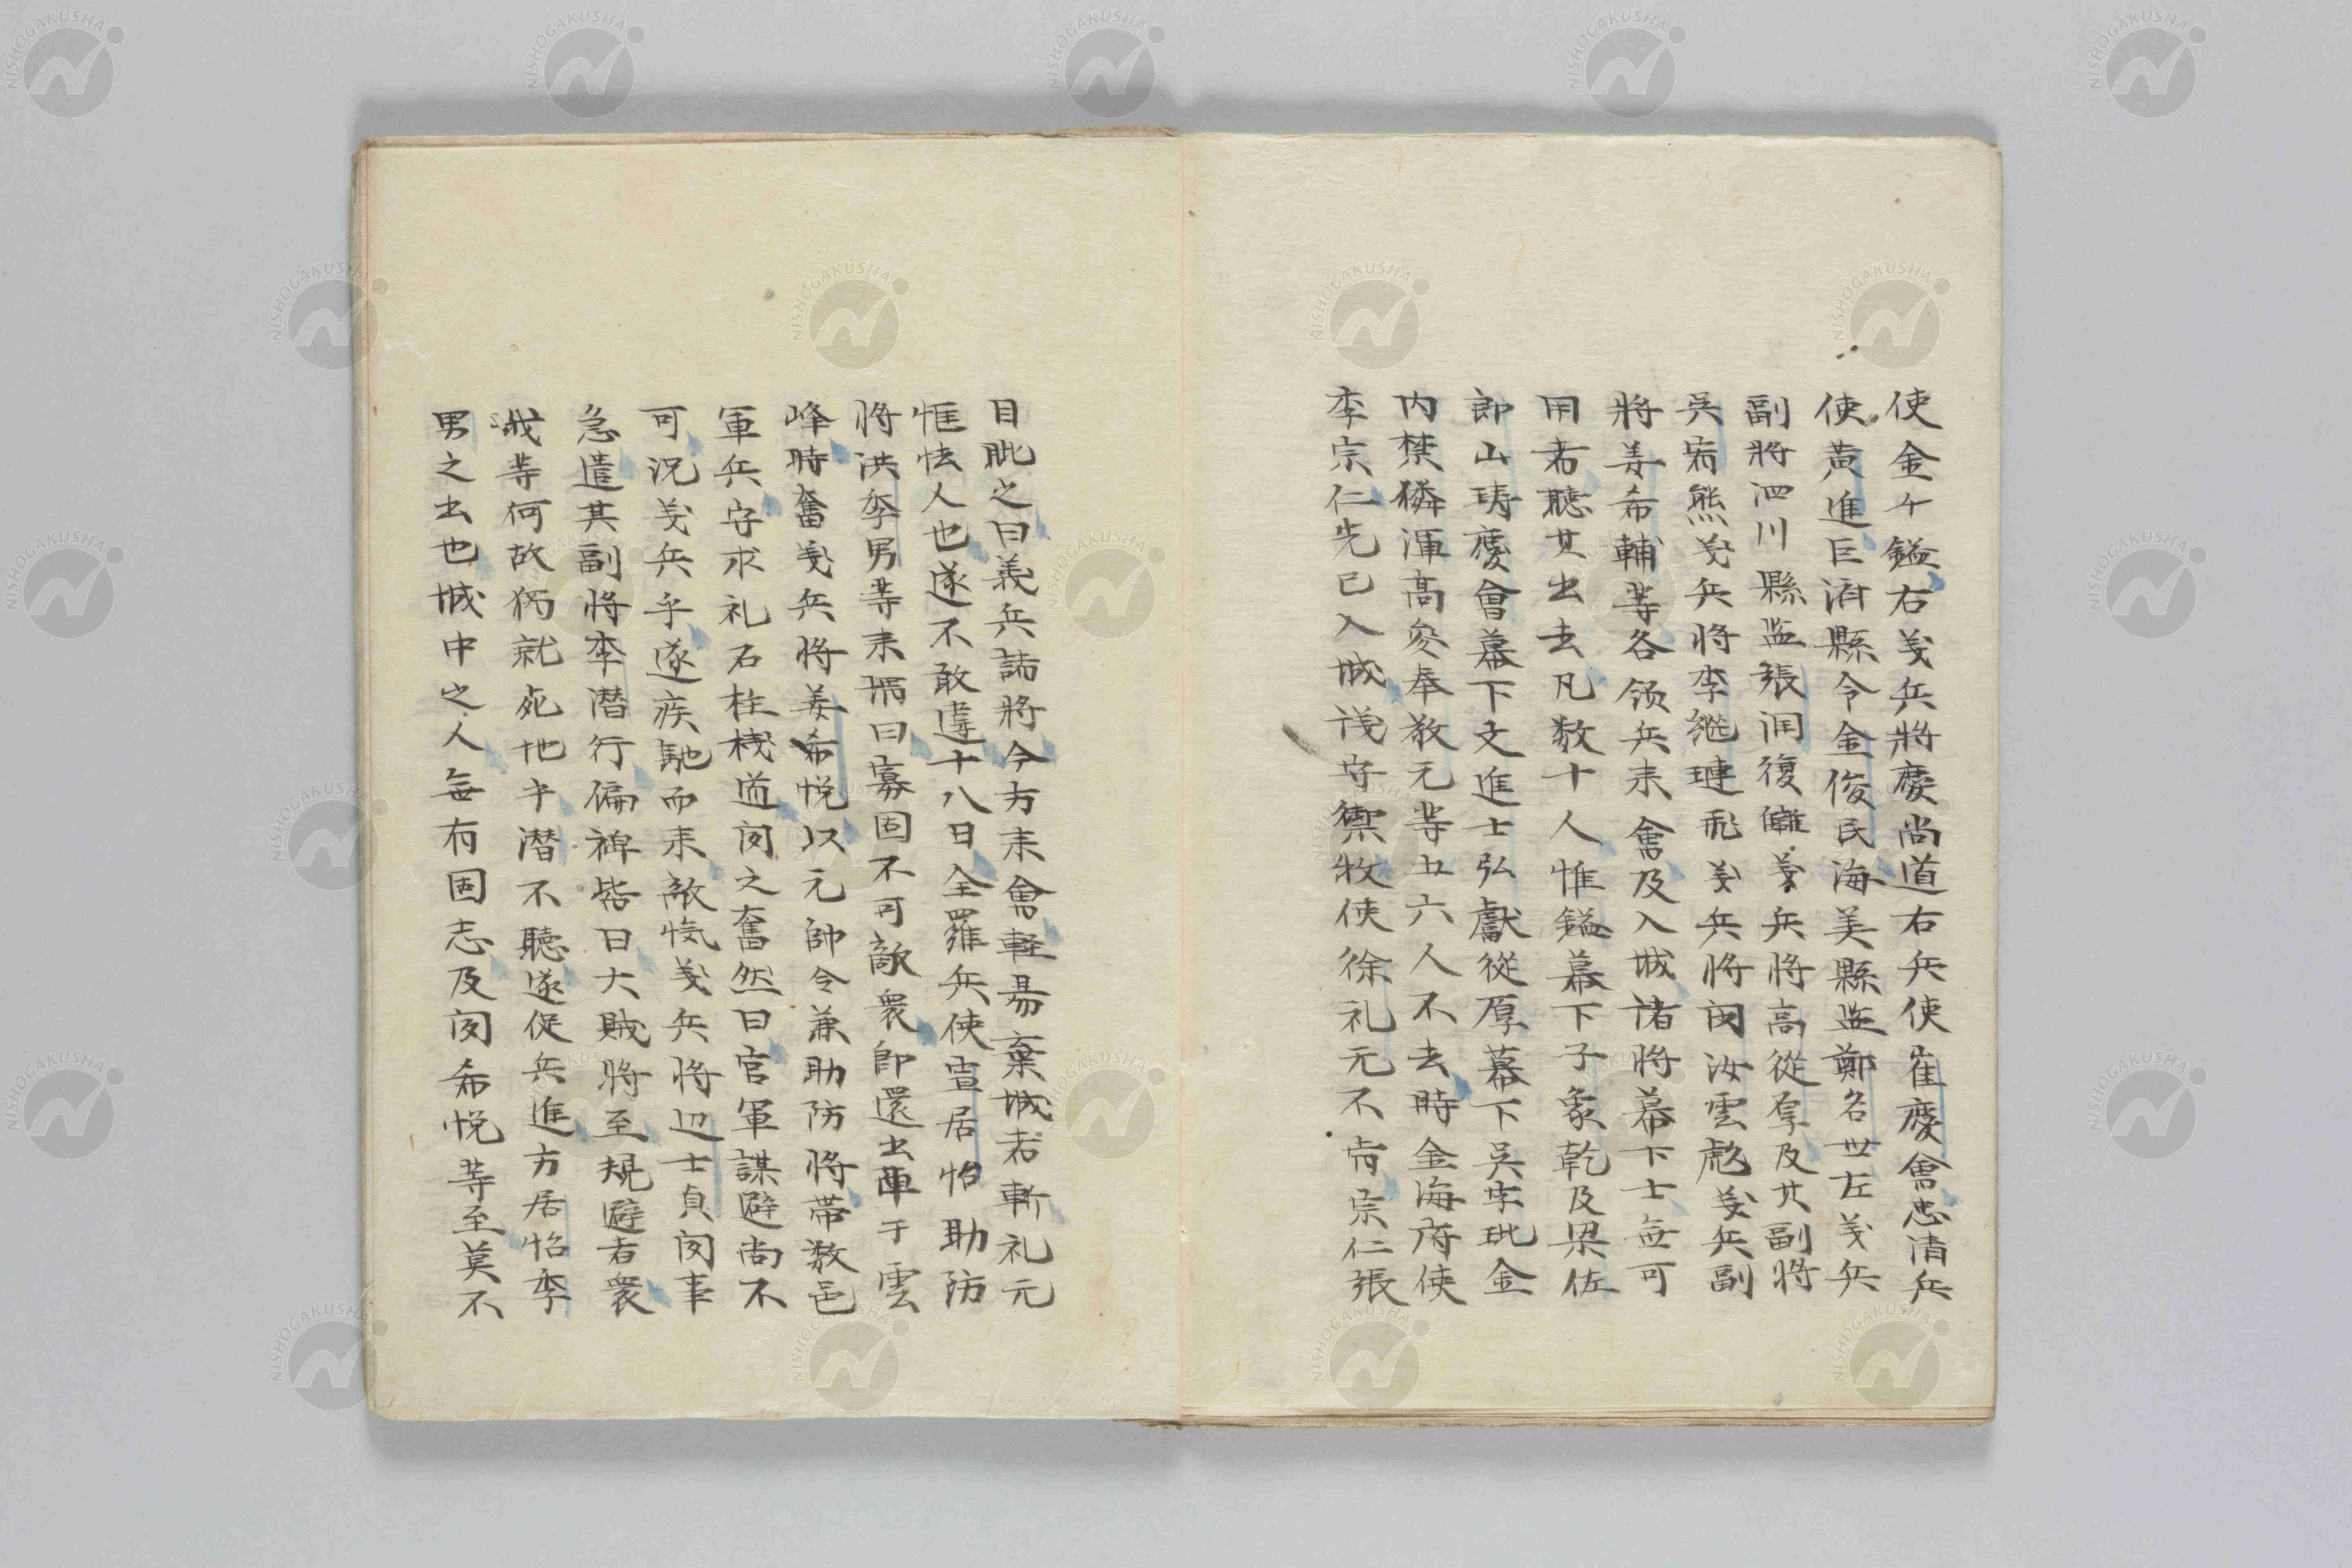 使金千鎰右義兵將慶尚道右兵使崔慶會忠清兵
使黃進巨済縣令金俊民海美縣監鄭名世左義兵
副將泗川縣監張潤復讎義兵將高從厚及其副將
吳宥熊義兵將李継璉飛義兵將閔汝雲彪義兵副
將姜希輔等各領兵来會及入城諸將幕下士無可
用者聽其出去凡数十人惟鎰幕下子象乾及梁佐
郎山璹慶會幕下文進士弘獻從厚幕下吳李玼金
内禁獜渾高叅奉敬元等五六人不去時金海府使
李宗仁先已入城議守禦牧使徐礼元不肯宗仁張
目眦之曰義兵諸將今方来會軽易棄城者斬礼元
恇怯人也遂不敢違十八日全羅兵使宣居怡助防
將洪季男等来壻曰寡固不可敵衆即還出陣于雲
峰時奮義兵將姜希悦以元帥令兼助防將帯数邑
軍兵守求礼石柱棧道闻之奮然曰官軍謀避尚不
可況義兵乎遂疾馳而来敵愾義兵將辺士貞闻事
急遣其副將李潜行偏裨皆曰大賊將至規避者衆
我等何故独就死地乎潜不聽遂促兵進方居怡季
男之出也城中之人無有固志及闻希悦等至莫不
NISHOGAKUSHA